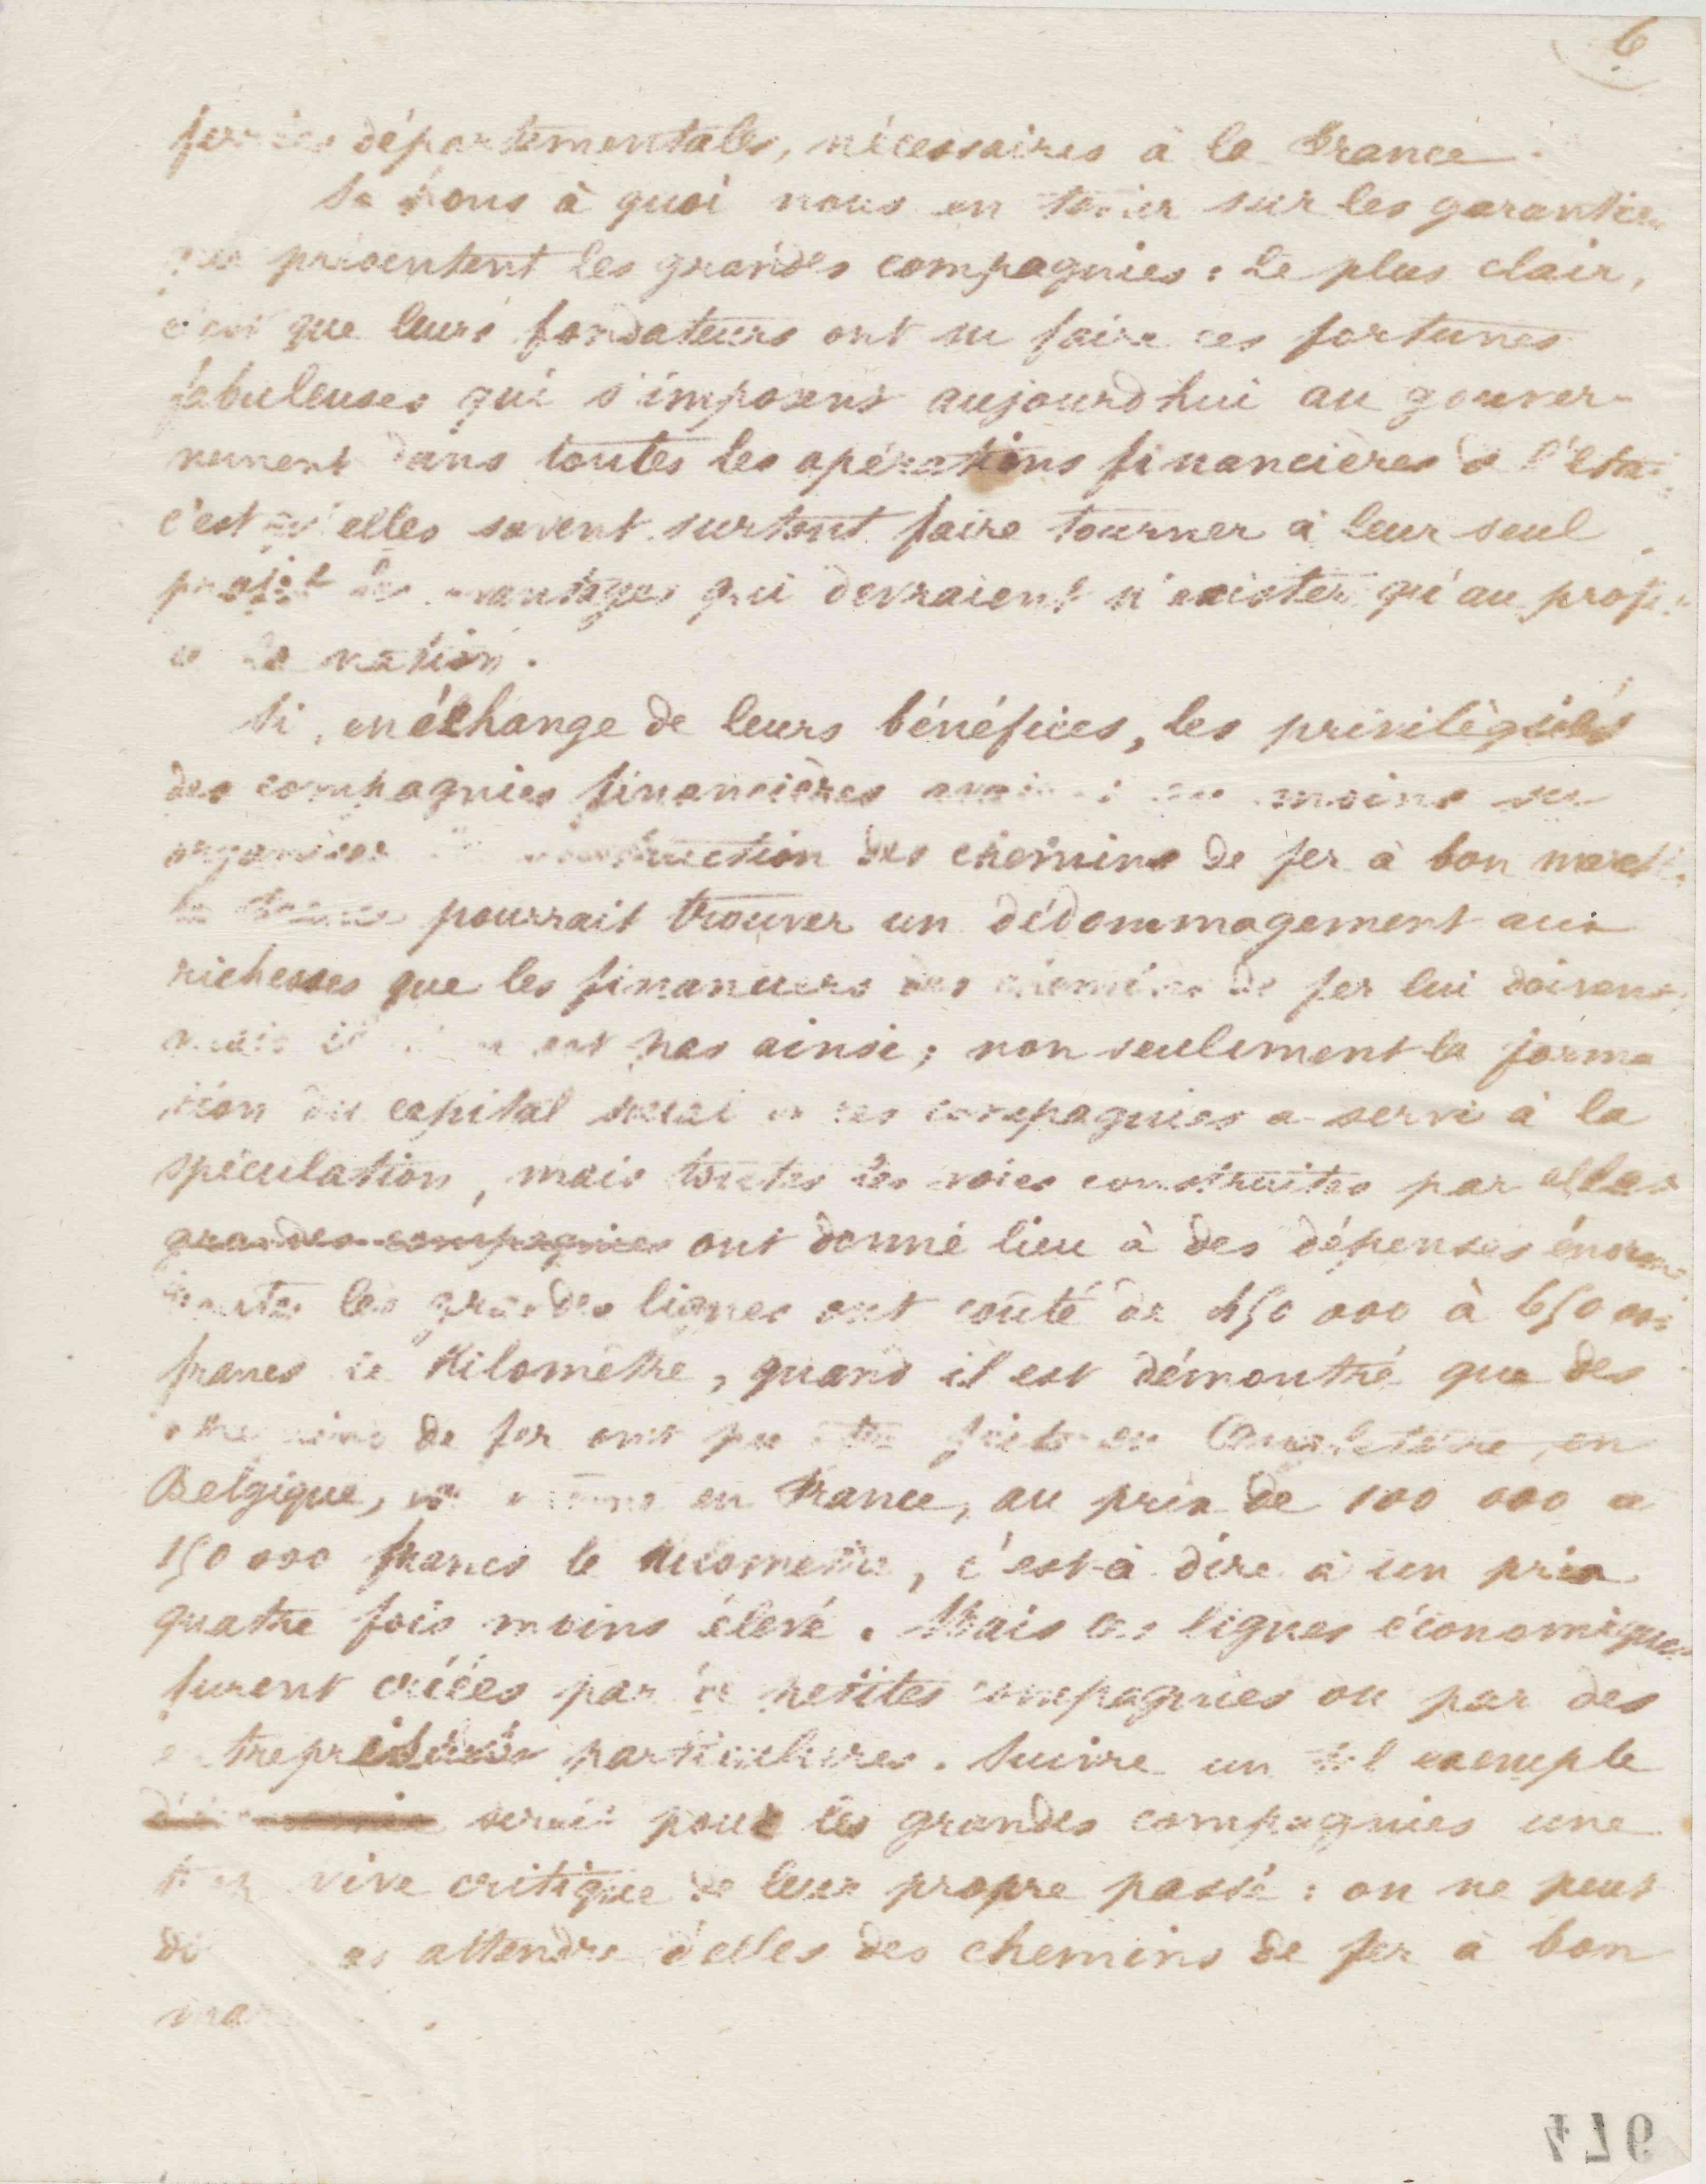 6
ferrées départementales, nécessaires à la France.
Savons à quoi nous en tenir sur les garanties
que présentent les grandes compagnies : le plus clair,
c'est que leurs fondateurs ont su faire ces fortunes
fabuleuses qui s'imposent aujourd'hui au gouver-
nement dans toutes les opérations financières de l'état
c'est qu'elles savent surtout faire tourner à leur seul
profit les avantages qui devraient n'exister qu'au profit
de la nation.
Si, en échange de leurs bénéfices, les privilégiés
des compagnies financières avaient au moins su
organiser la construction des chemins de fer à bon marché
la France pourrait trouver un dédommagement aux
richesses que les financiers des chemins de fer lui doivent,
mais il n'en est pas ainsi ; non seulement la forma
tion du capital social de ces compagnies a servi à la
spéculation, mais toutes les voies construites par elles
grandes compagnies ont donné lieu à des dépenses énormes
toutes les grandes lignes ont coûté de 450 000 à 650 000
francs le Kilomètre, quand il est démontré que des
chemins de fer ont pu être faits en Angleterre, en
Belgique, en France, au prix de 100 000 à
150 000 francs le Kilomètre, c'est-à dire à un prix
quatre fois moins élevé. Mais ces lignes économiques
furent créées par de petites compagnies ou par des
entreprises particulières. Suivre un tel exemple
serait pour les grandes compagnies une
trop vive critique de leur propre passé : on ne peut
donc pas attendre d'elles des chemins de fer à bon
marché.
476